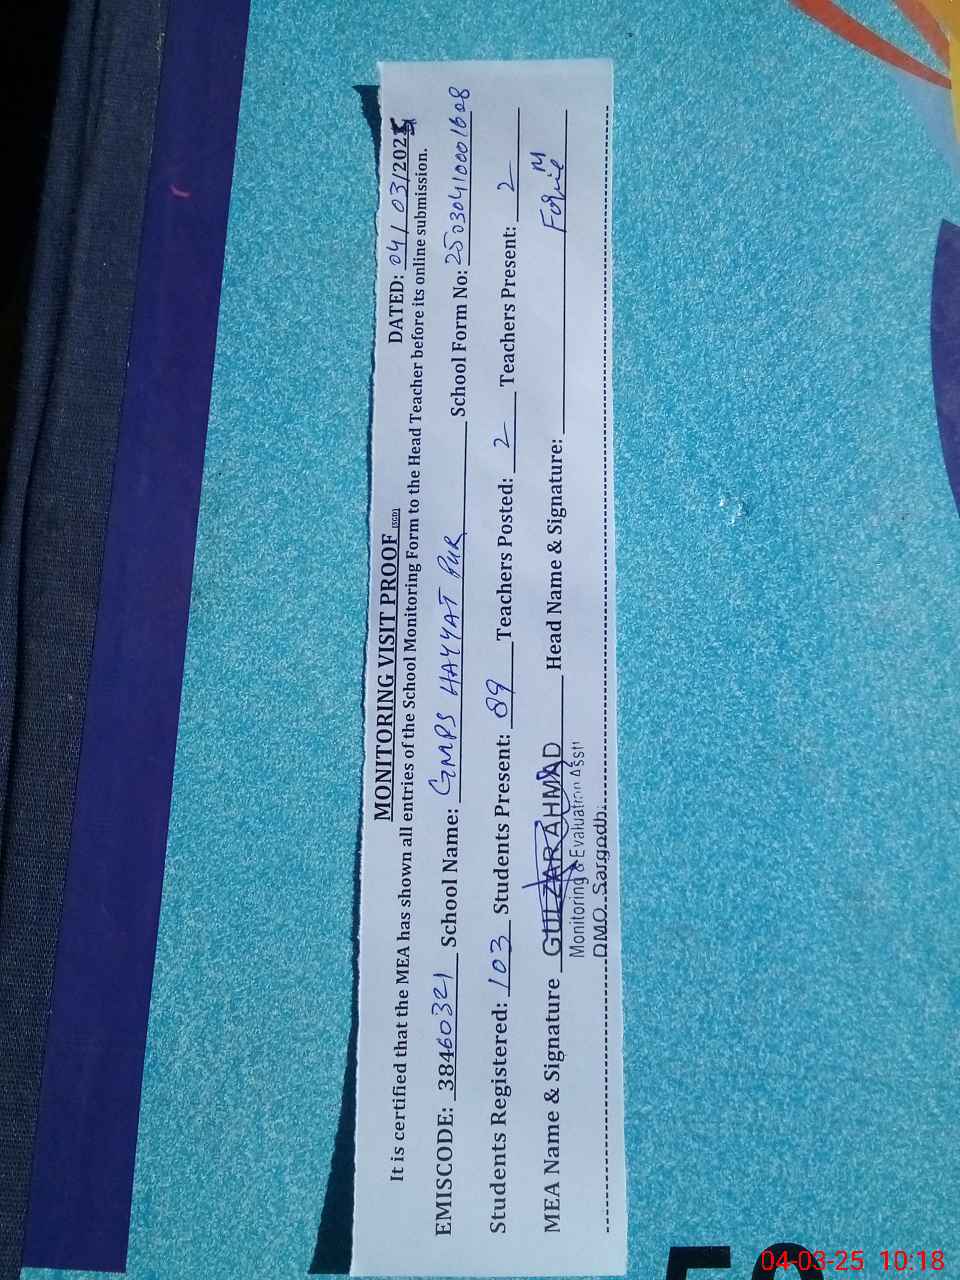 MONITORING VISIT PROOF (SGD)
DATED: 04/03/2025
It is certified that the MEA has shown all entries of the School Monitoring Form to the Head Teacher before its online submission.
EMISCODE: 38460321 School Name: GMPS HAYYAT PUR School Form No: 25030410001608
Students Registered: 103 Students Present: 89 Teachers Posted: 2 Teachers Present: 2
MEA Name & Signature GULZAR AHMAD Head Name & Signature:
Monitoring & Evaluation Asstt
DMO Sargodh
04-03-25 10:18